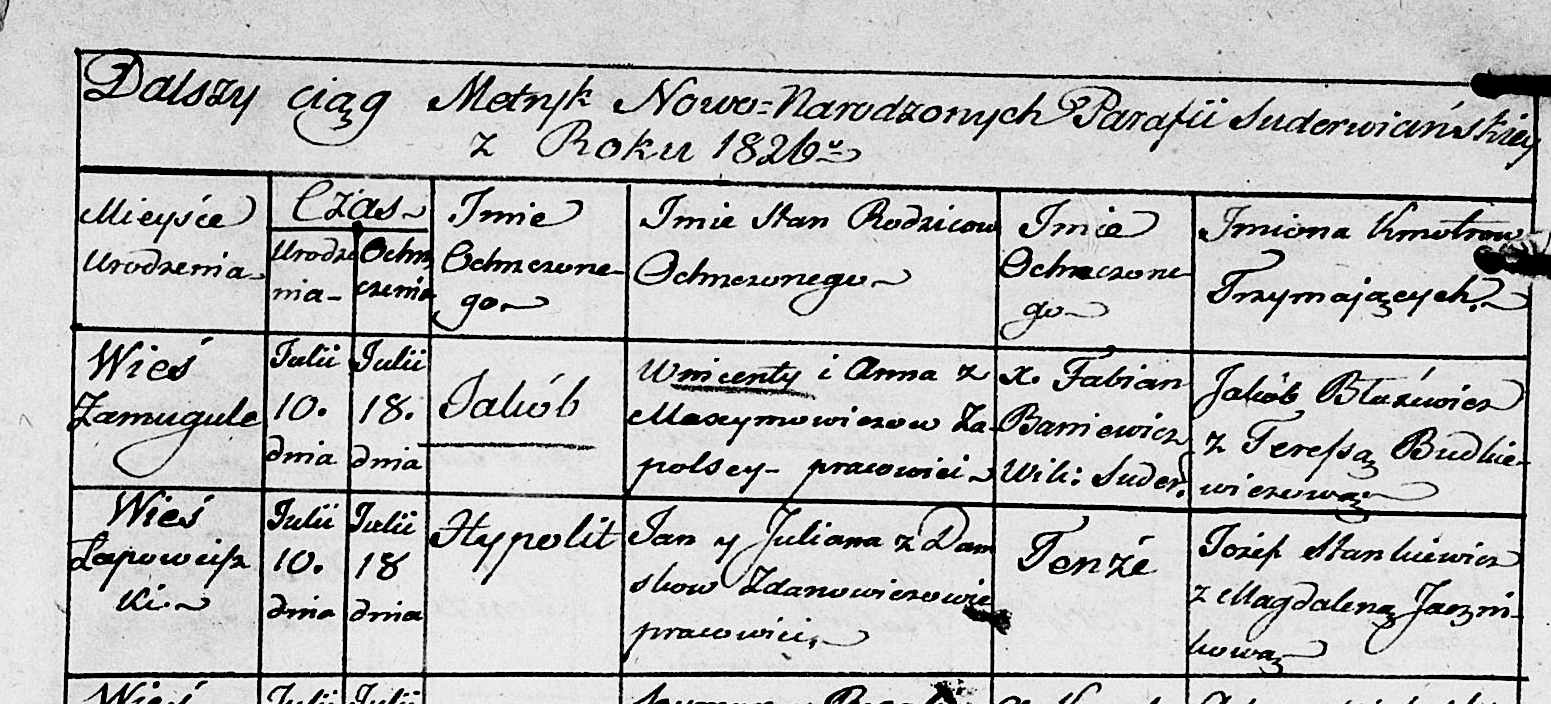 Dalszy ciąg Metryk Nowo=Narodzonych Parafii Suderwiańskiey
z Roku 1826u
Mieyśce
Urodzenia
Czas
Urodze
nia
Ochrz
czenia
Imie
Ochrzczone-
go
Imie Stan Rodzicow
Ochrzczonego
Imie
Ochrzczone-
go
Imiona Kmotrow
Trzymających.
Wieś
Zamugule
Julii
10.
dnia
Julii
18.
dnia
Jakób
Wincenty i Anna z
Maxymowiczow Za-
polscy pracowici
X. Fabian
Baniewicz
Wik: Suder.
Jakób Błażewicz
z Teressą Budkie-
wiczową
Wieś
Łapowcisz
ki.
Julii
10.
dnia
Julii
18
dnia
Hypolit
Jan y Juliana z Dam
skow Zdanowiczowie
pracowici.
Tenże
Jozef Stankiewicz
z Magdaleną Jaczni-
kową
Wieś
Julii
Julii